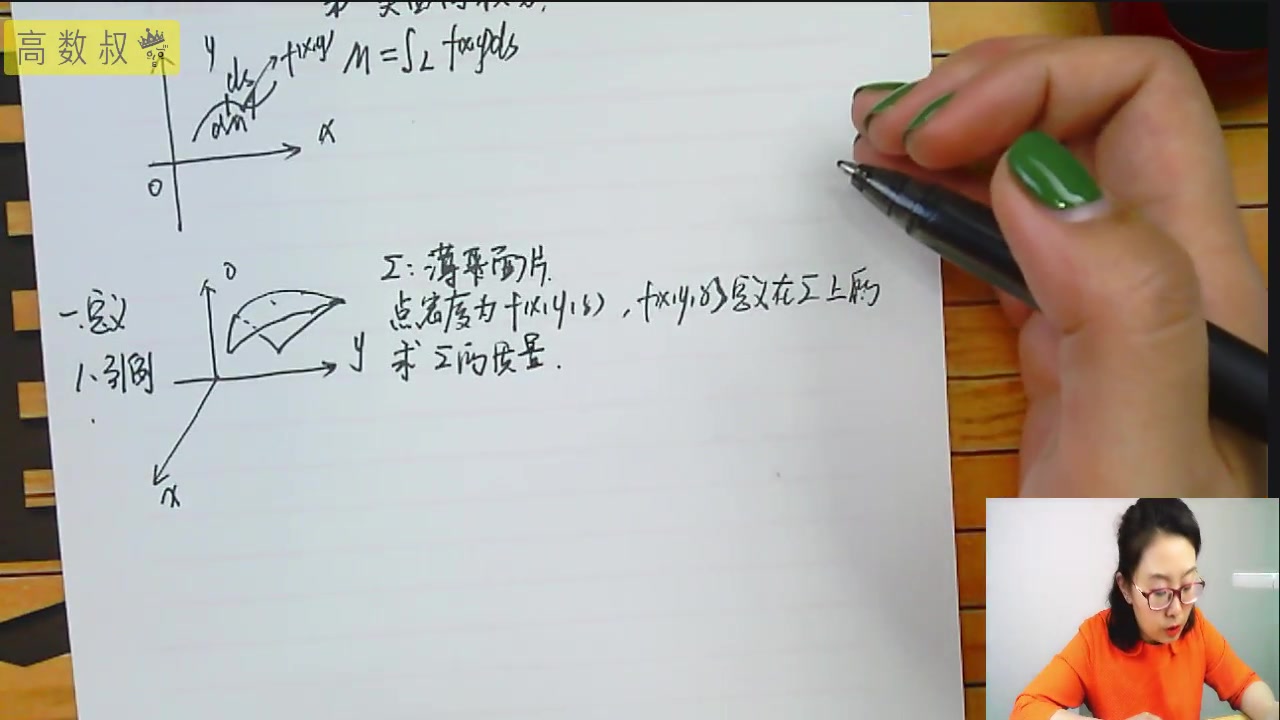 高数叔
y
ds
f(x,y)
M=∫L f(x,y)ds
dm
x
0
Σ:薄平面片.
点密度为f(x,y,z),f(x,y,z)定义在Σ上的
求Σ的质量.
一.定义
1.引例
0
y
x